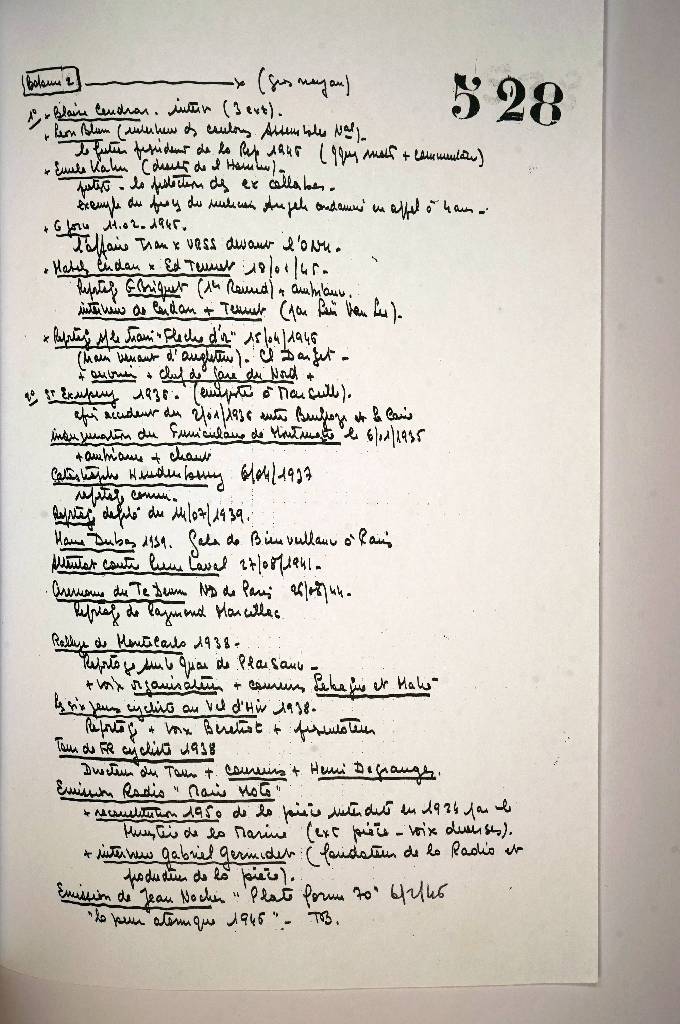 Bobine 2 (gros noyau)
528
1° * Blaise Cendrars. interv (3 ext).
* Léon Blum (interview ds couloirs Assemblée Nale)
le futur président de la Rep 1946 (qques mots + commentaire)
* Emile Kahn (droits de l'Homme)
proteste - la protection des ex collabos -
exemple du procès du milicien Angeli condamné en appel à 4 ans -
11.02.1946.
l'affaire Iran x URSS devant l'ONU.
* Marcel Cerdan x Ed Tenet 18/01/45.
Reportage G Briquet (1er Round) + ambiance.
interview de Cerdan + Tenet (par Loïs Van Lee).
* Reportage s/le train "Flèche d'or" 15/04/1946
(train venant d'angleterre). Cl Darget -
+ ouvrier + chef de gare du Nord +
2° St Exupery 1936. (enregistré à Marseille).
après accident du 2/01/1936 entre Benghazi et le Caire
inauguration du Funiculaire de Montmartre le 6/01/1935
+ ambiance + chant
Catastrophe Hindenbourg 6/04/1937
reportage comm.
Reportage défilé du 14/07/1939.
Marie Dubas 1939. Gala de Bienveillance à Paris
Attentat contre Pierre Laval 27/08/1941.
Cérémonie du Te Deum ND de Paris 26/08/44.
Reportage de Raymond Marcillac
Rallye de Monte Carlo 1938 -
Reportage sur le Quai de Plaisance -
+ voix organisateur + coureurs Lebègue et Mahé
Les six jours cycliste au Vel d'Hiv 1938 -
Reportage + voix Berretrot + présentateur
Tour de FR cycliste 1938
Directeur du Tour + coureurs + Henri Desgranges.
Emission Radio "Maremoto"
+ reconstitution 1950 de la pièce interdite en 1924 par le
Ministère de la Marine (ext pièce - voix diverses).
+ interview Gabriel Germinet (fondateur de la Radio et
producteur de la pièce).
Emission de Jean Nocher "Plate forme 70" 6/2/46
"la peur atomique 1946" - TB.